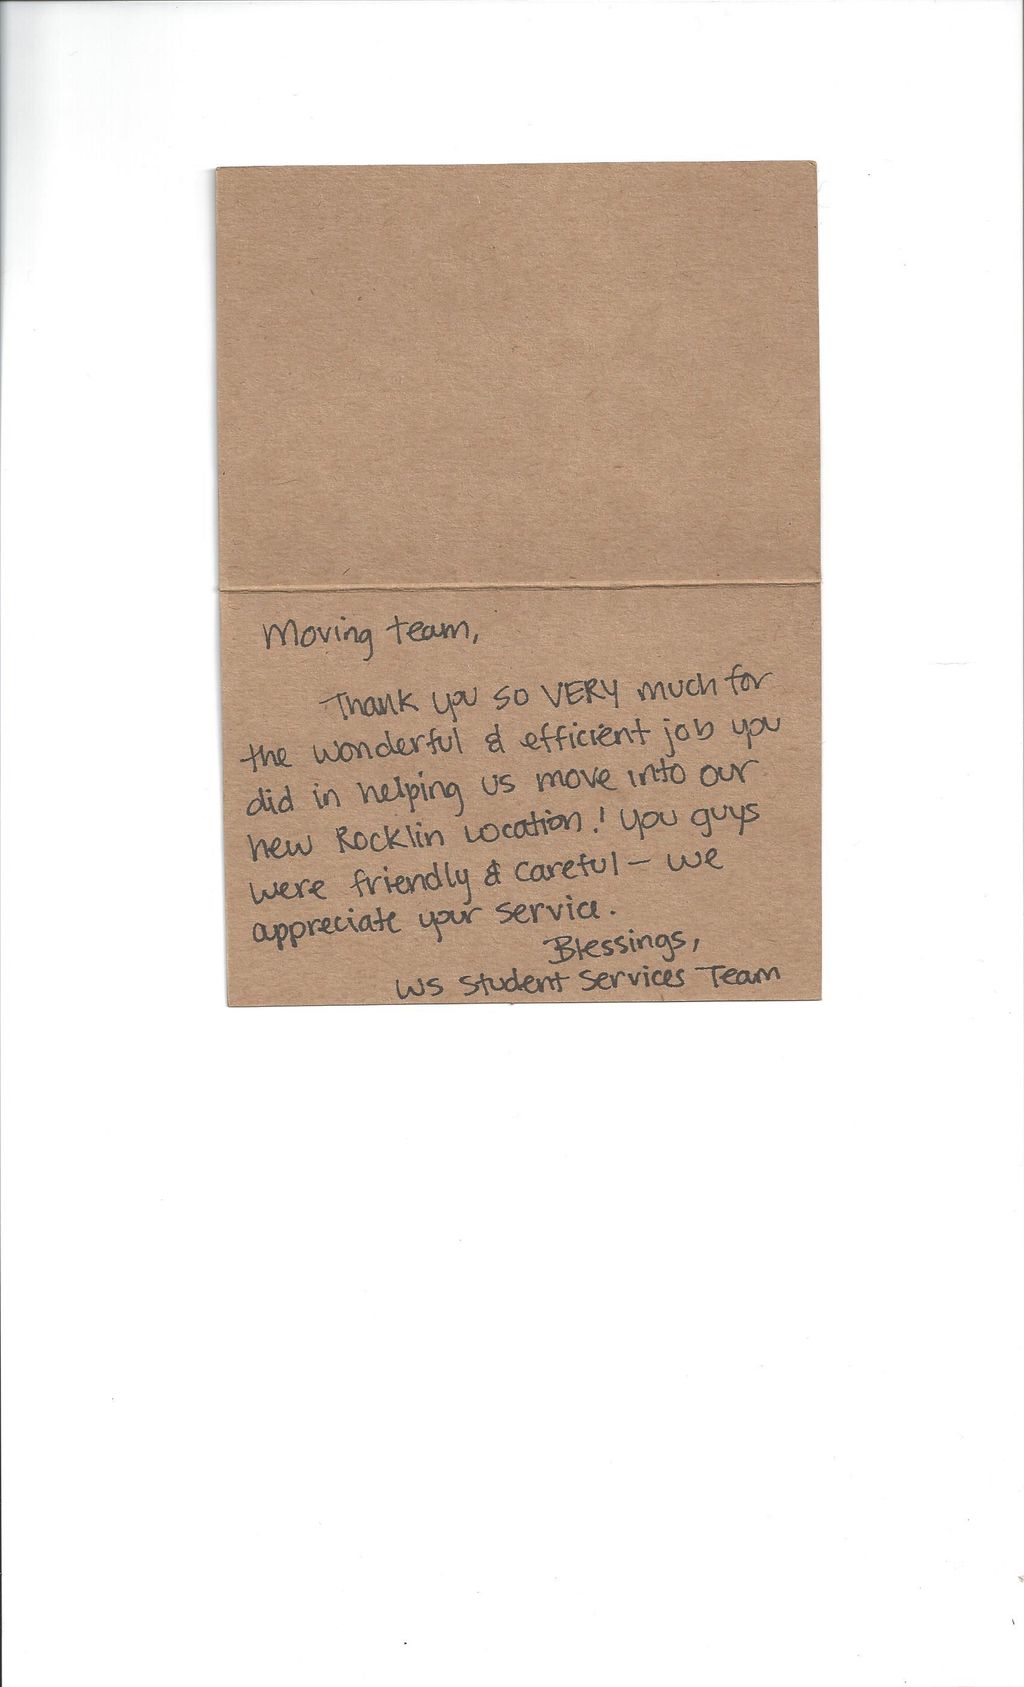 Moving team,
Thank you so VERY much for
the wonderful & efficient job you
did in helping us move into our
new Rocklin location! You guys
were friendly & careful – we
appreciate your service.
Blessings,
WS Student Services Team